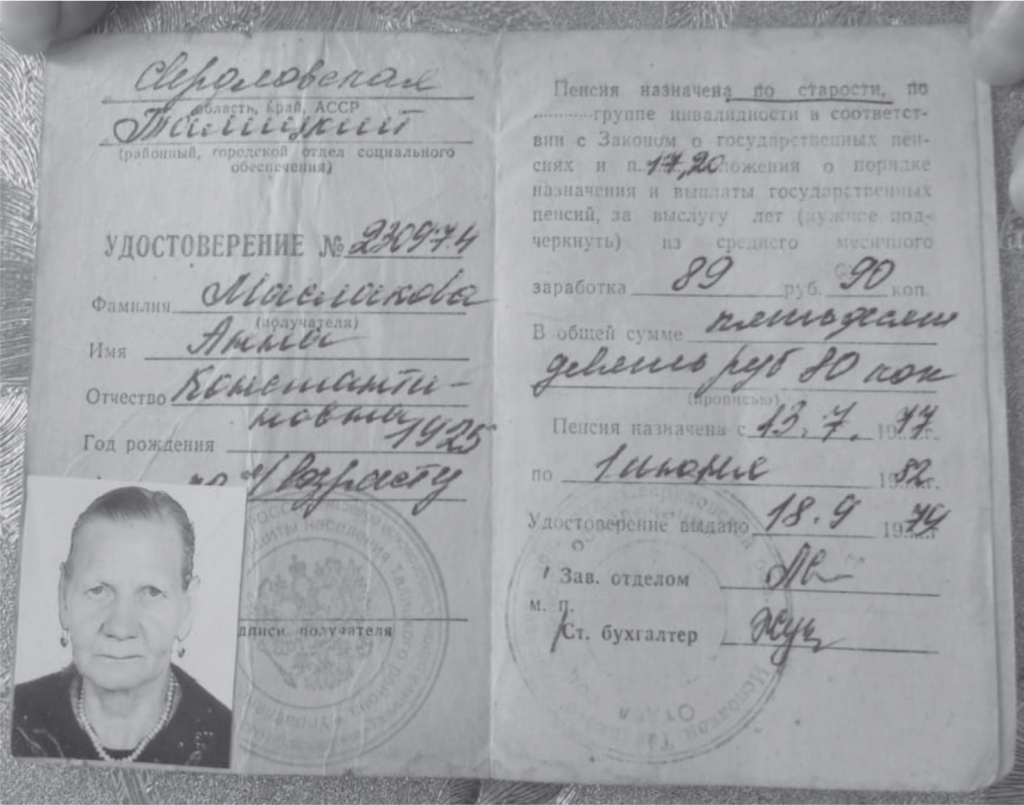 Свердловская
область, край, АССР
Талицкий
(районный, городской отдел социального
обеспечения)
УДОСТОВЕРЕНИЕ № 230974
Фамилия Маслакова
(получателя)
Имя Анна
Отчество Константи-
новна
Год рождения 1925
по возрасту
дписи получателя
Пенсия назначена по старости, по
группе инвалидности в соответст-
вии с Законом о государственных пен-
сиях и п. 17,20 ложения о порядке
назначения и выплаты государственных
пенсий, за выслугу лет (нужное под-
черкнуть) из среднего месячного
заработка 89 руб. 90 коп.
В общей сумме пятьдесят
девять руб 80 коп
(прописью)
Пенсия назначена с 13.7. 1977г.
по 1 июня 1982г.
Удостоверение выдано 18.9 1979г
Зав. отделом
м. п.
Ст. бухгалтер Жук